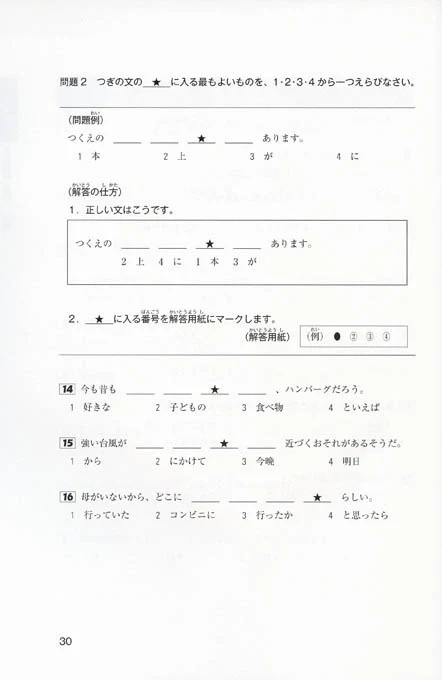 問題2　つぎの文の ★ に入る最もよいものを、1・2・3・4から一つえらびなさい。
(問題例)
つくえの ＿＿ ＿＿ ★ ＿＿ あります。
1 本　2 上　3 が　4 に
(解答の仕方)
1．正しい文はこうです。
つくえの ＿＿ ＿＿ ★ ＿＿ あります。
2 上　4 に　1 本　3 が
2． ★ に入る番号を解答用紙にマークします。
(解答用紙)　(例) ● ② ③ ④
14 今も昔も ＿＿ ＿＿ ★ ＿＿ 、ハンバーグだろう。
1 好きな　2 子どもの　3 食べ物　4 といえば
15 強い台風が ＿＿ ＿＿ ★ ＿＿ 近づくおそれがあるそうだ。
1 から　2 にかけて　3 今晩　4 明日
16 母がいないから、どこに ＿＿ ＿＿ ＿＿ ★ らしい。
1 行っていた　2 コンビニに　3 行ったか　4 と思ったら
30